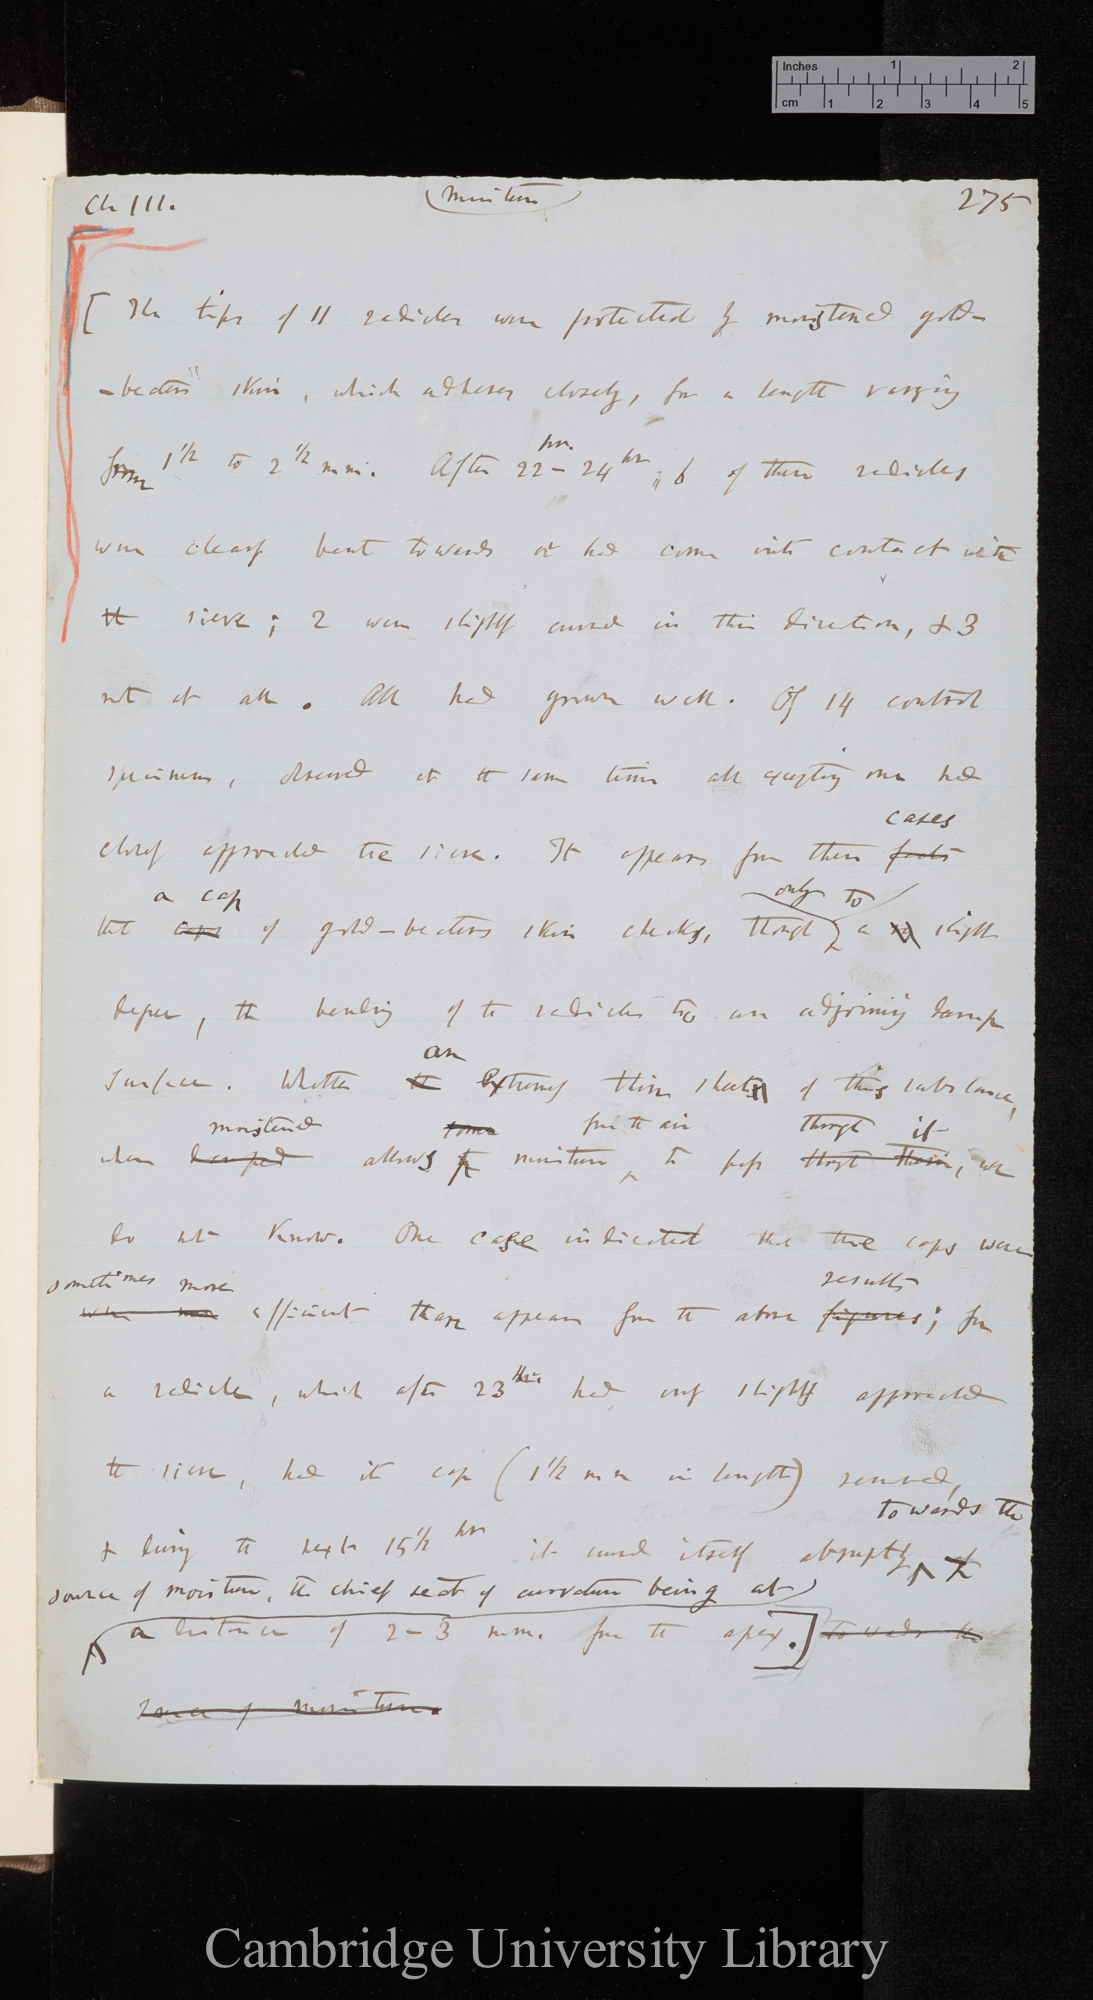 Inches 1 2
cm 1 2 3 4 5
Ch III. Moisture 275
[The tips of 11 radicles were protected by moistened gold-
-beaters" skin, which adheres closely, for a length varying
from 1 1/2 to 2 1/2 mm. After 22 hrs.–24 hrs, 6 of these radicles
were clearly bent towards or had come into contact with
the sieve; 2 were slightly curved in this direction, & 3
not at all. All had grown well. Of 14 control
specimens, observed at the same time all excepting one had
cases
closely approached the sieve. It appears from these facts
a cap only to
that caps of gold-beaters skin checks, though a slight
degree, the bending of the radicles to an adjoining damp
an
surface. Whether the extremely thin sheet of this substance,
moistened some from the air through it
when damped allows the moisture to pass through them, we
do not know. One case indicated that the caps were
sometimes more results
were more efficient than appears from the above figures; for
a radicle, which after 23 hrs. had only slightly approached
the sieve, had its cap (1 1/2 mm in length) removed,
towards the
& during the next 15 1/2 hrs it curved itself abruptly at
source of moisture, the chief seat of curvature being at
a distance of 2–3 mm. from the apex.] towards the
source of moisture.
Cambridge University Library